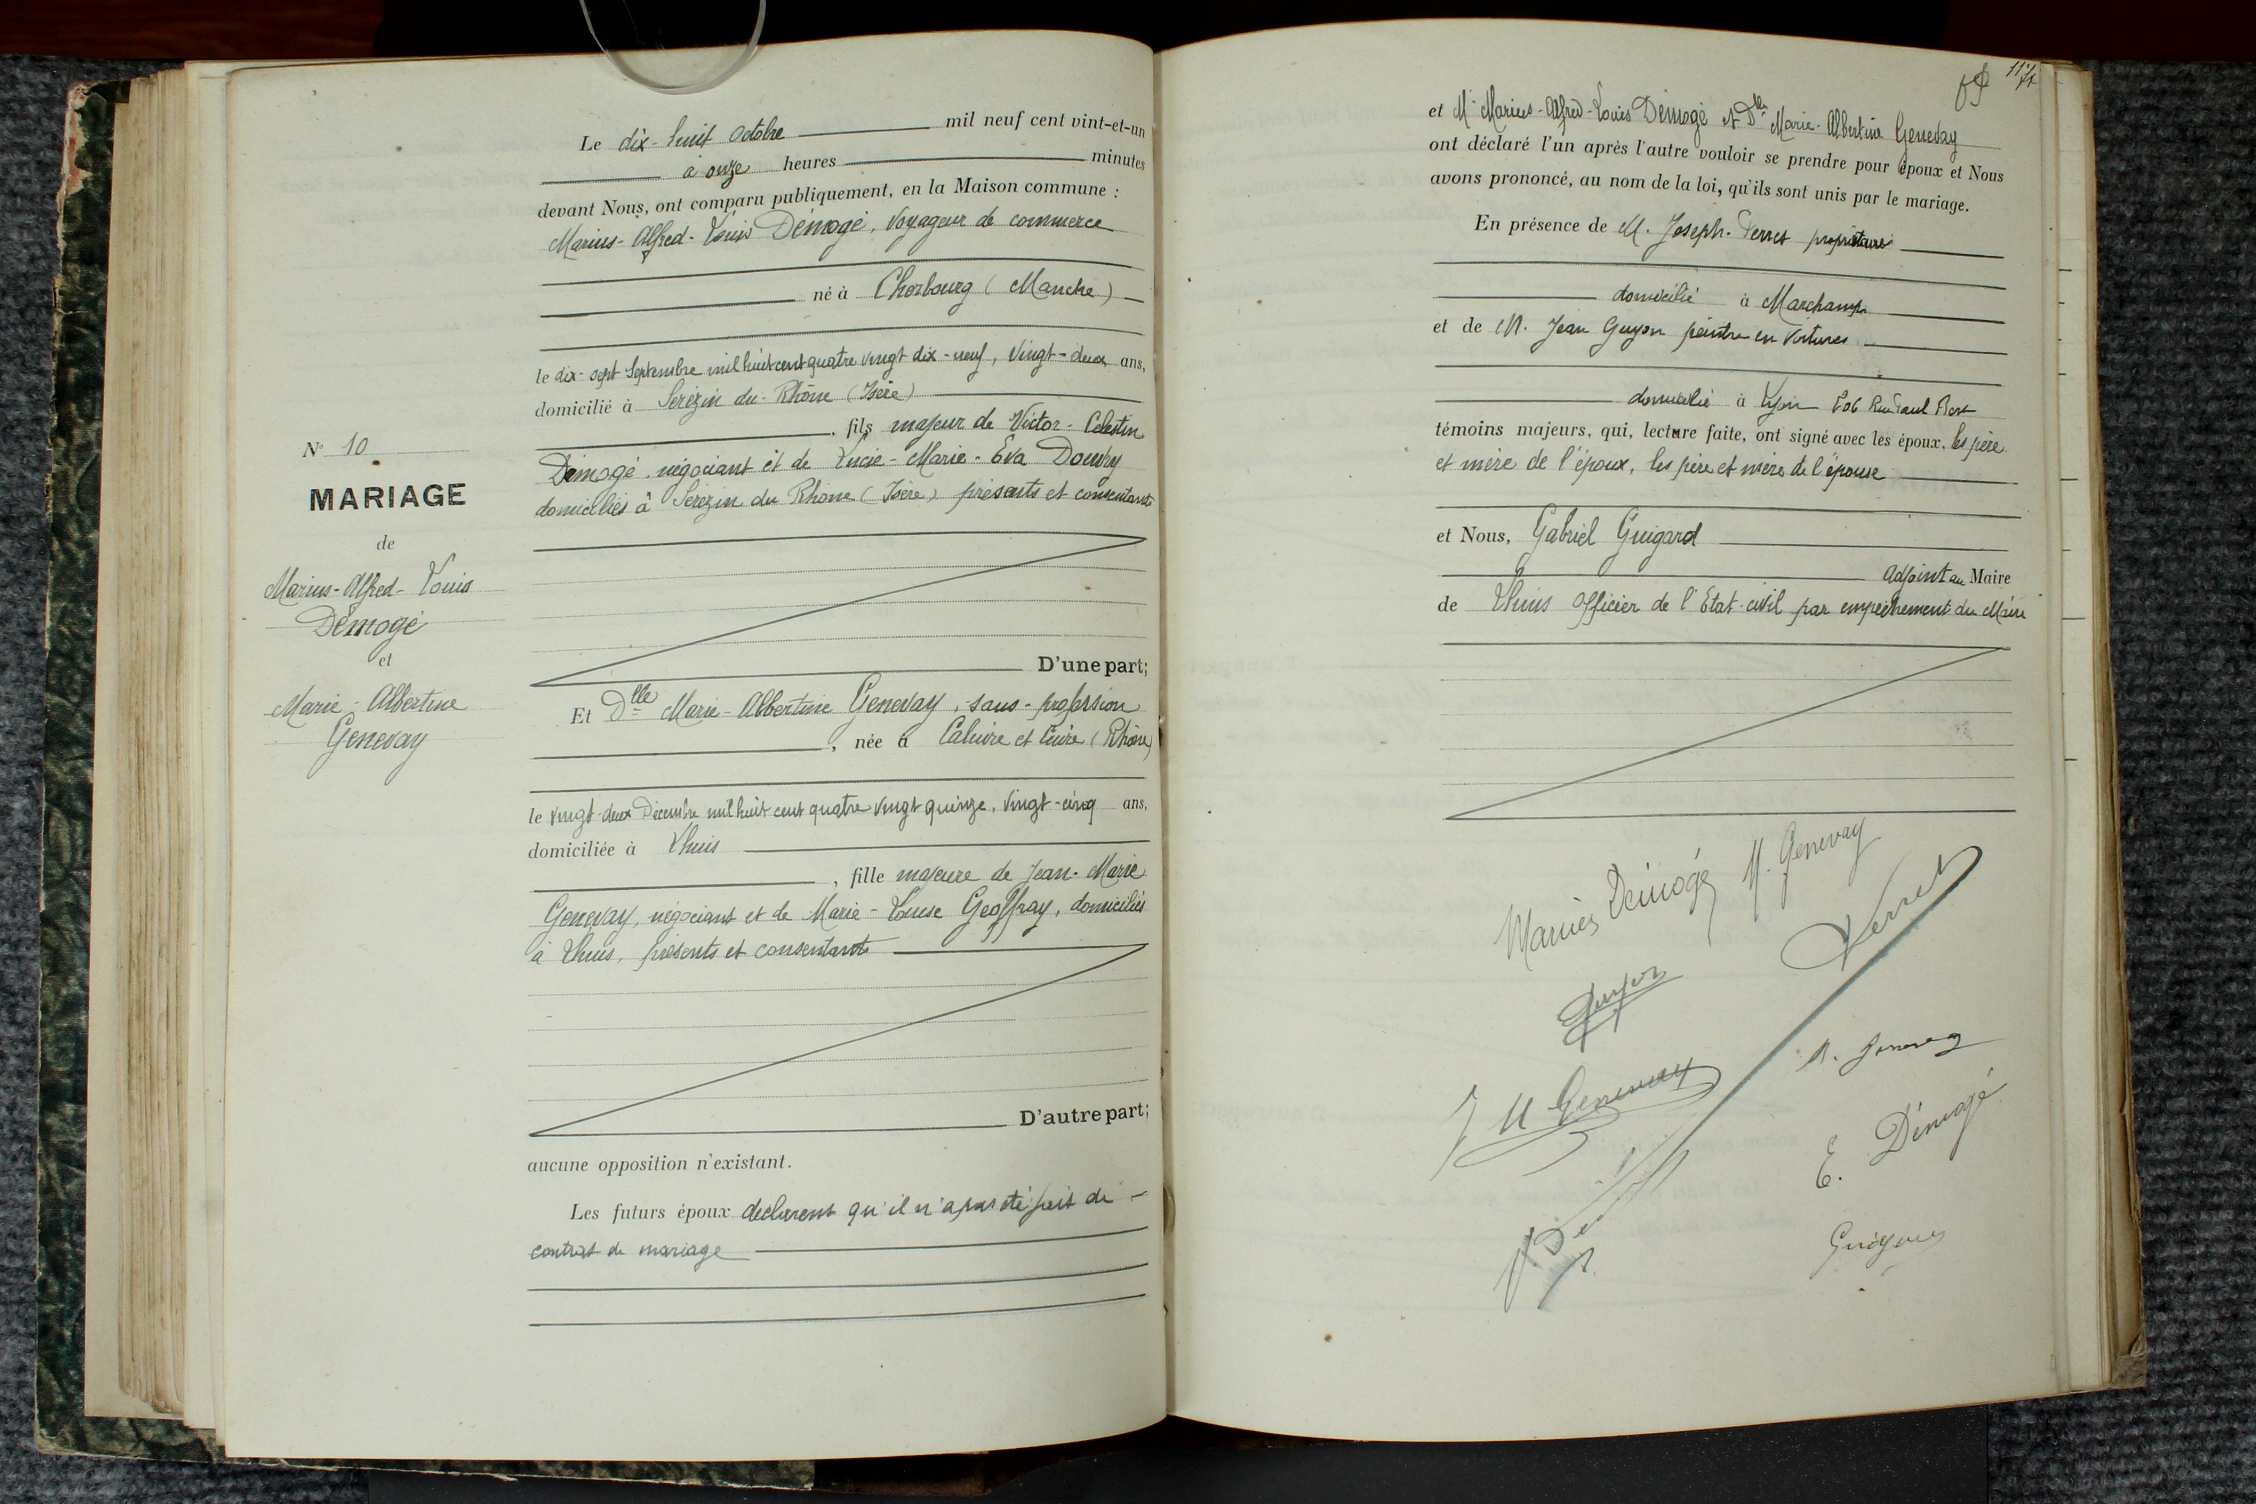 N° 10
MARIAGE
de
Marius-Alfred-Louis
Démogé
et
Marie-Albertine
Genevay
Le dix-huit Octobre mil neuf cent vint-et-un
à onze heures minutes
devant Nous, ont comparu publiquement, en la Maison commune :
Marius-Alfred-Louis Démogé, Voyageur de commerce
né à Cherbourg (Manche)
le dix-sept Septembre mil huit cent quatre vingt dix-neuf, Vingt-deux ans,
domicilié à Sérézin du-Rhône (Isère)
, fils majeur de Victor-Celestin
Démogé négociant et de Lucie-Marie-Eva Douvry
domiciliés à Sérézin du Rhône (Isère) présents et consentants
D'une part;
Et Dlle Marie-Albertine Genevay, sans-profession
, née à Caluire et Cuire (Rhône)
le vingt-deux Décembre mil huit cent quatre vingt quinze, Vingt-cinq ans,
domiciliée à Lhuis
, fille majeure de Jean-Marie
Genevay, négociant et de Marie-Louise Geoffray, domiciliés
à Lhuis, présents et consentants
D'autre part;
aucune opposition n'existant.
Les futurs époux declarent qu'il n'a pas été fait de
contrat de mariage
et Mr Marius-Alfred-Louis Démogé et Dlle Marie-Albertine Genevay
ont déclaré l'un après l'autre vouloir se prendre pour époux et Nous
avons prononcé, au nom de la loi, qu'ils sont unis par le mariage.
En présence de M. Joseph Perret propriétaire
domicilié à Marchamp
et de M. Jean Guyon peintre en voitures
domicilié à Lyon 206 Rue Paul Bert
témoins majeurs, qui, lecture faite, ont signé avec les époux, les père
et mère de l'époux, les père et mère de l'épouse
et Nous, Gabriel Guigard
adjoint au Maire
de Lhuis Officier de l'Etat-civil par empêchement du Maire
Marius Démogé M. Genevay
Perret
Guyon
J M Genevay
E. Démogé